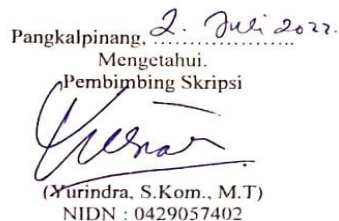 Pangkalpinang, 2. Juli 2022.
Mengetahui.
Pembimbing Skripsi
(Yurindra, S.Kom., M.T)
NIDN : 0429057402